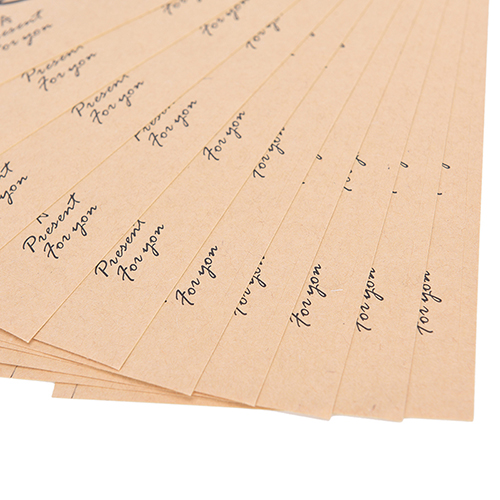 A
Present
For you
Present
For you
Present
For you
Present
For you
For you
For you
Present
For you
Present
For you
For you
For you
For you
For you
For you